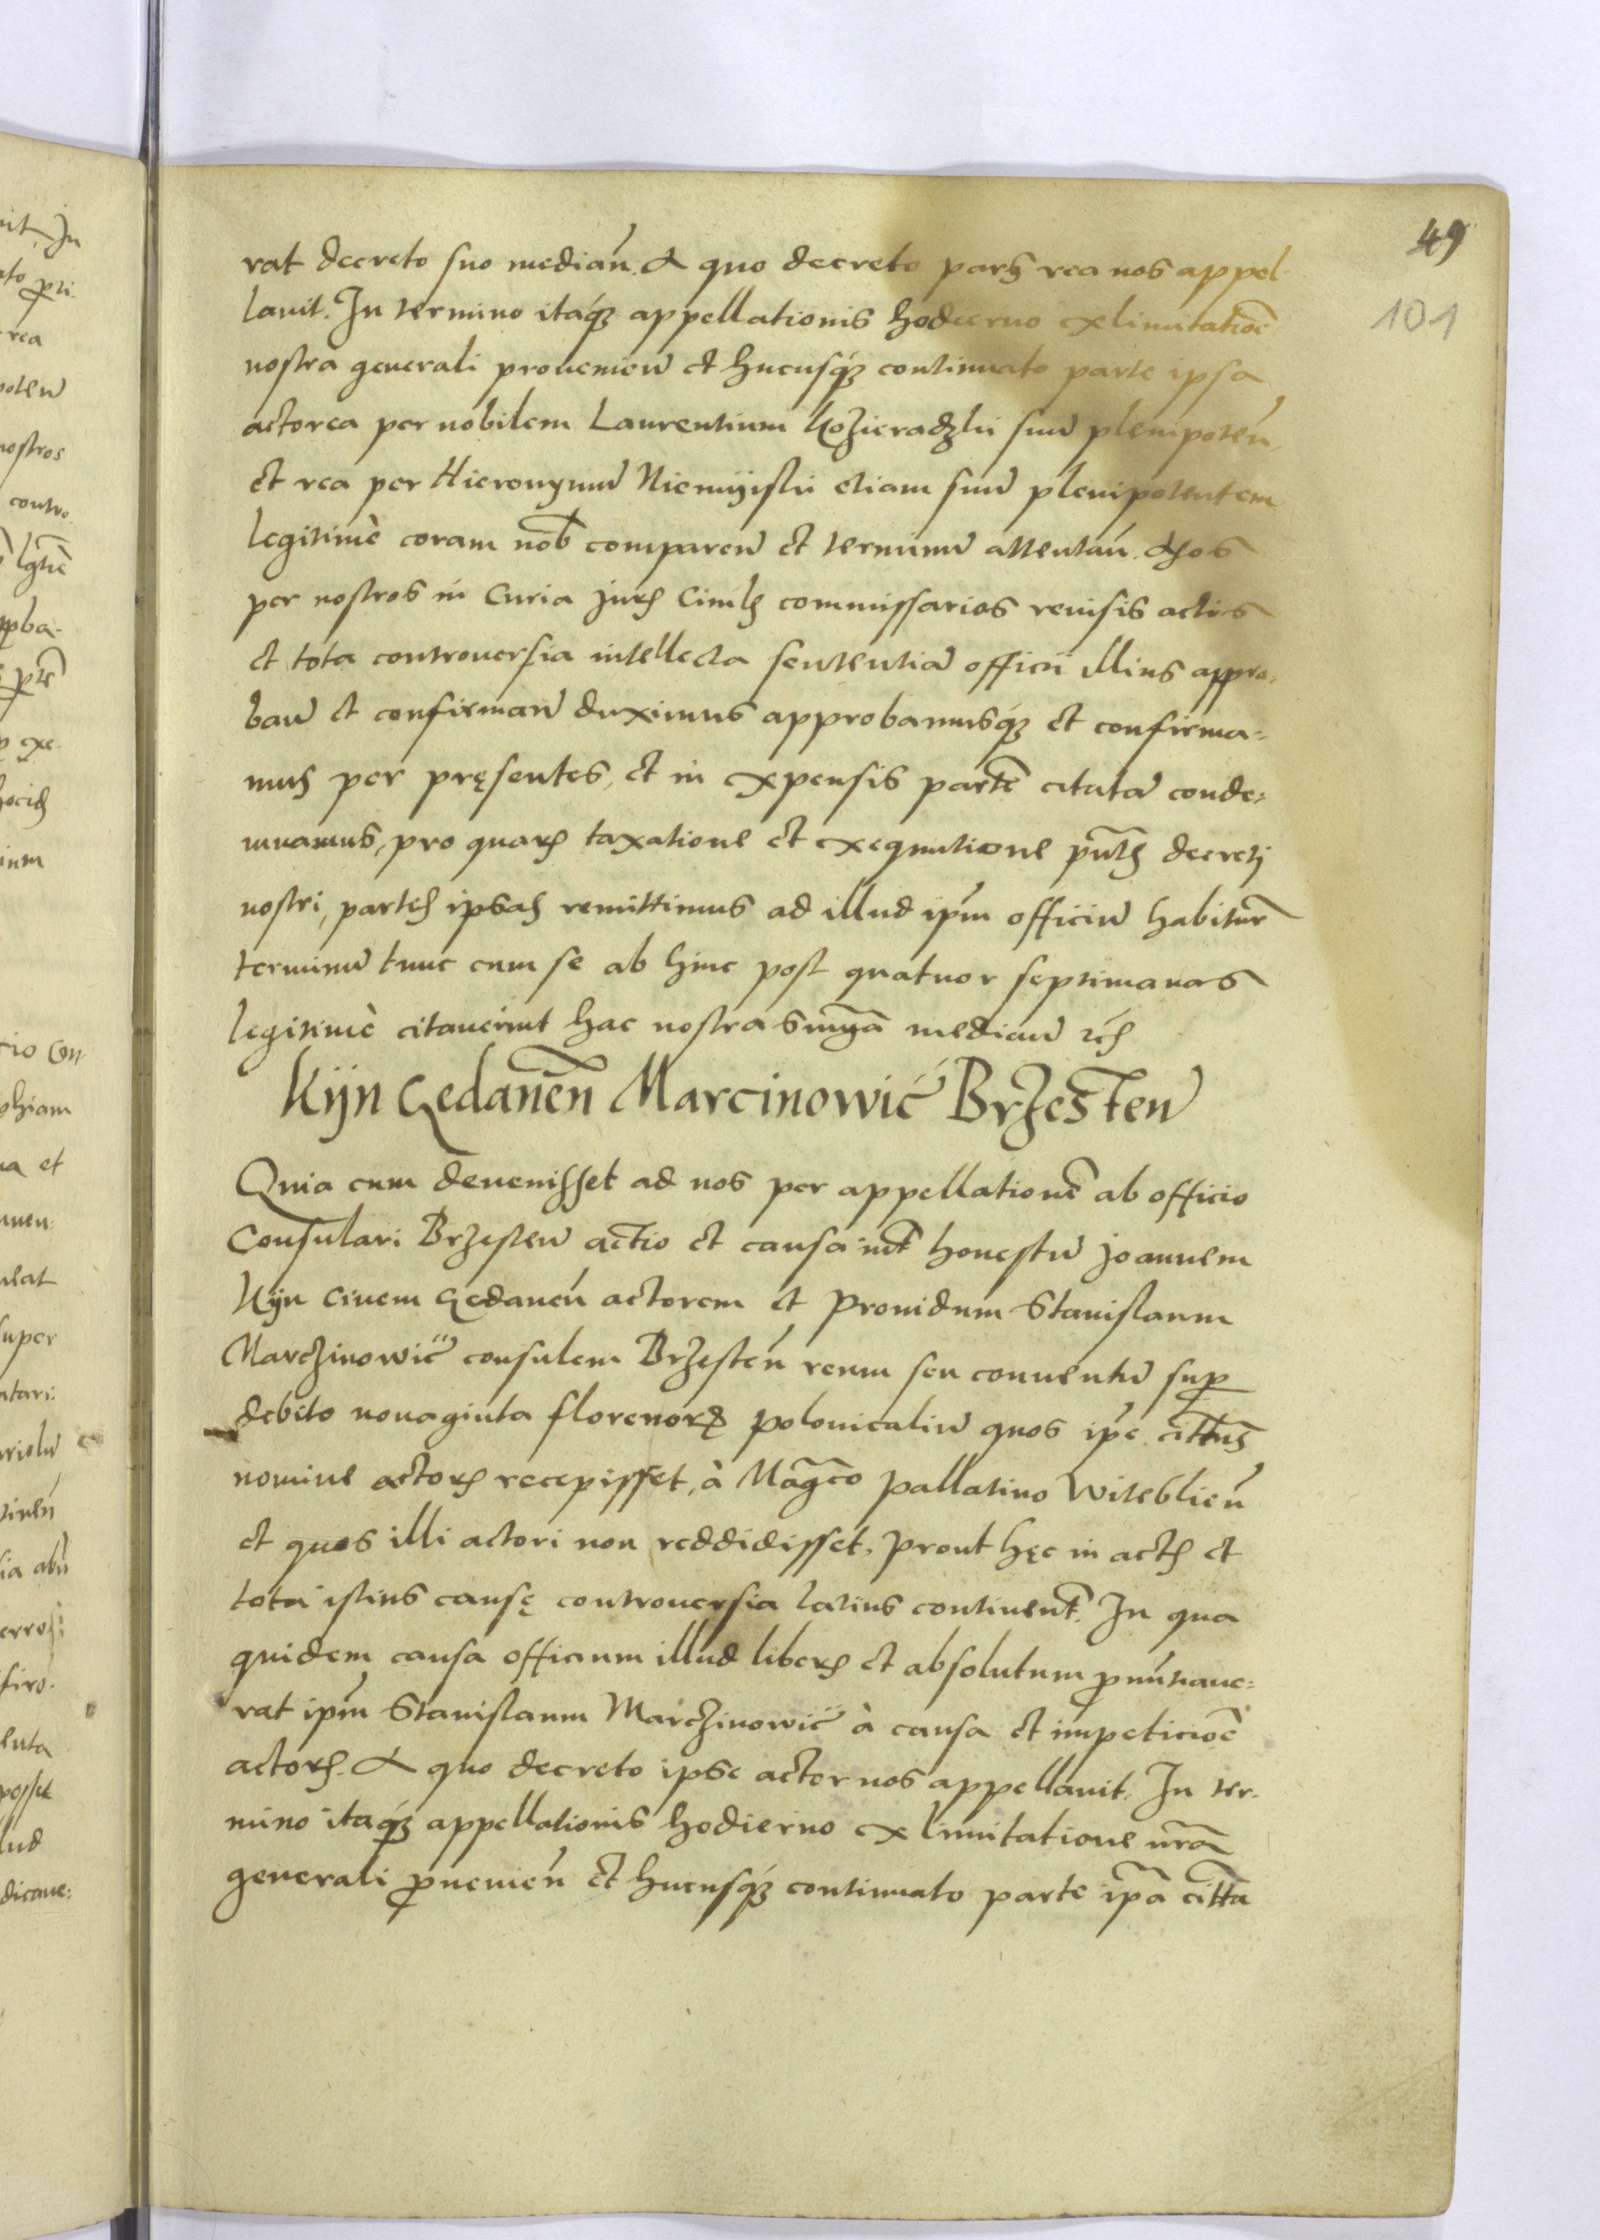 49
101
rat decreto suo median̄. A quo decreto pars rea nos appel-
lauit. In termino itaq́ꝫ appellationis hodierno ex limitatiōe
nostra generali prouenien̄ et hucusq́ꝫ continuato parte ipsa
actorea per nobilem Laurentium Kozieradzki suū plenipoten̄
et rea per Hieronymū Niemyski etiam suū plenipotentem
legitimè coram nob̄ comparen̄ et terminū attentan̄. Nos
per nostros in Curia Juris Ciuilis commissarios reuisis actis
et tota controuersia intellecta sententiā officii illius appro-
ban̄ et confirman̄ duximus approbamusq́ꝫ et confirma-
mus per pręsentes, et in expensis partē citatā conde-
mnamus, pro quarū taxatione et exequutione pn̄tis decreti
nostri, partes ipsas remittimus ad illud ip̄m officiū habitur̄
terminū tunc cum se ab hinc post quatuor septimanas
legitimè citauerint hac nostra sn̄ia median̄ etc
Kijn Gedanēn Marcinowić Brzesten̄
Quia cum deuenisset ad nos per appellationē ab officio
Consulari Brzesten̄ actio et causa int̄ honestū Joannem
Kijn Ciuem Gedanen̄ actorem et Prouidum Stanislaum
Marczinowic̋ consulem Brzesten̄ reum seu conuentū sup̱
debito nonaginta florenorꝝ polonicaliū quos ip̄e citt̄us
nomine actoris recepisset, à Mag̅co Pallatino Witeblien̄
et quos illi actori non reddidisset, prout hęc in actis et
tota istius causę controuersia latius continent̄. In qua
quidem causa officium illud liberū et absolutum ꝓnun̄tiaue-
rat ip̄m Stanislaum Marczinowic̋ à causa et impeticiōe
actoris. A quo decreto ipse actor nos appellauit. In ter-
mino itaq́ꝫ appellationis hodierno ex limitatione nr̄a
generali ꝓuenien̄ et hucusq́ꝫ continuato parte ip̄a citt̄a